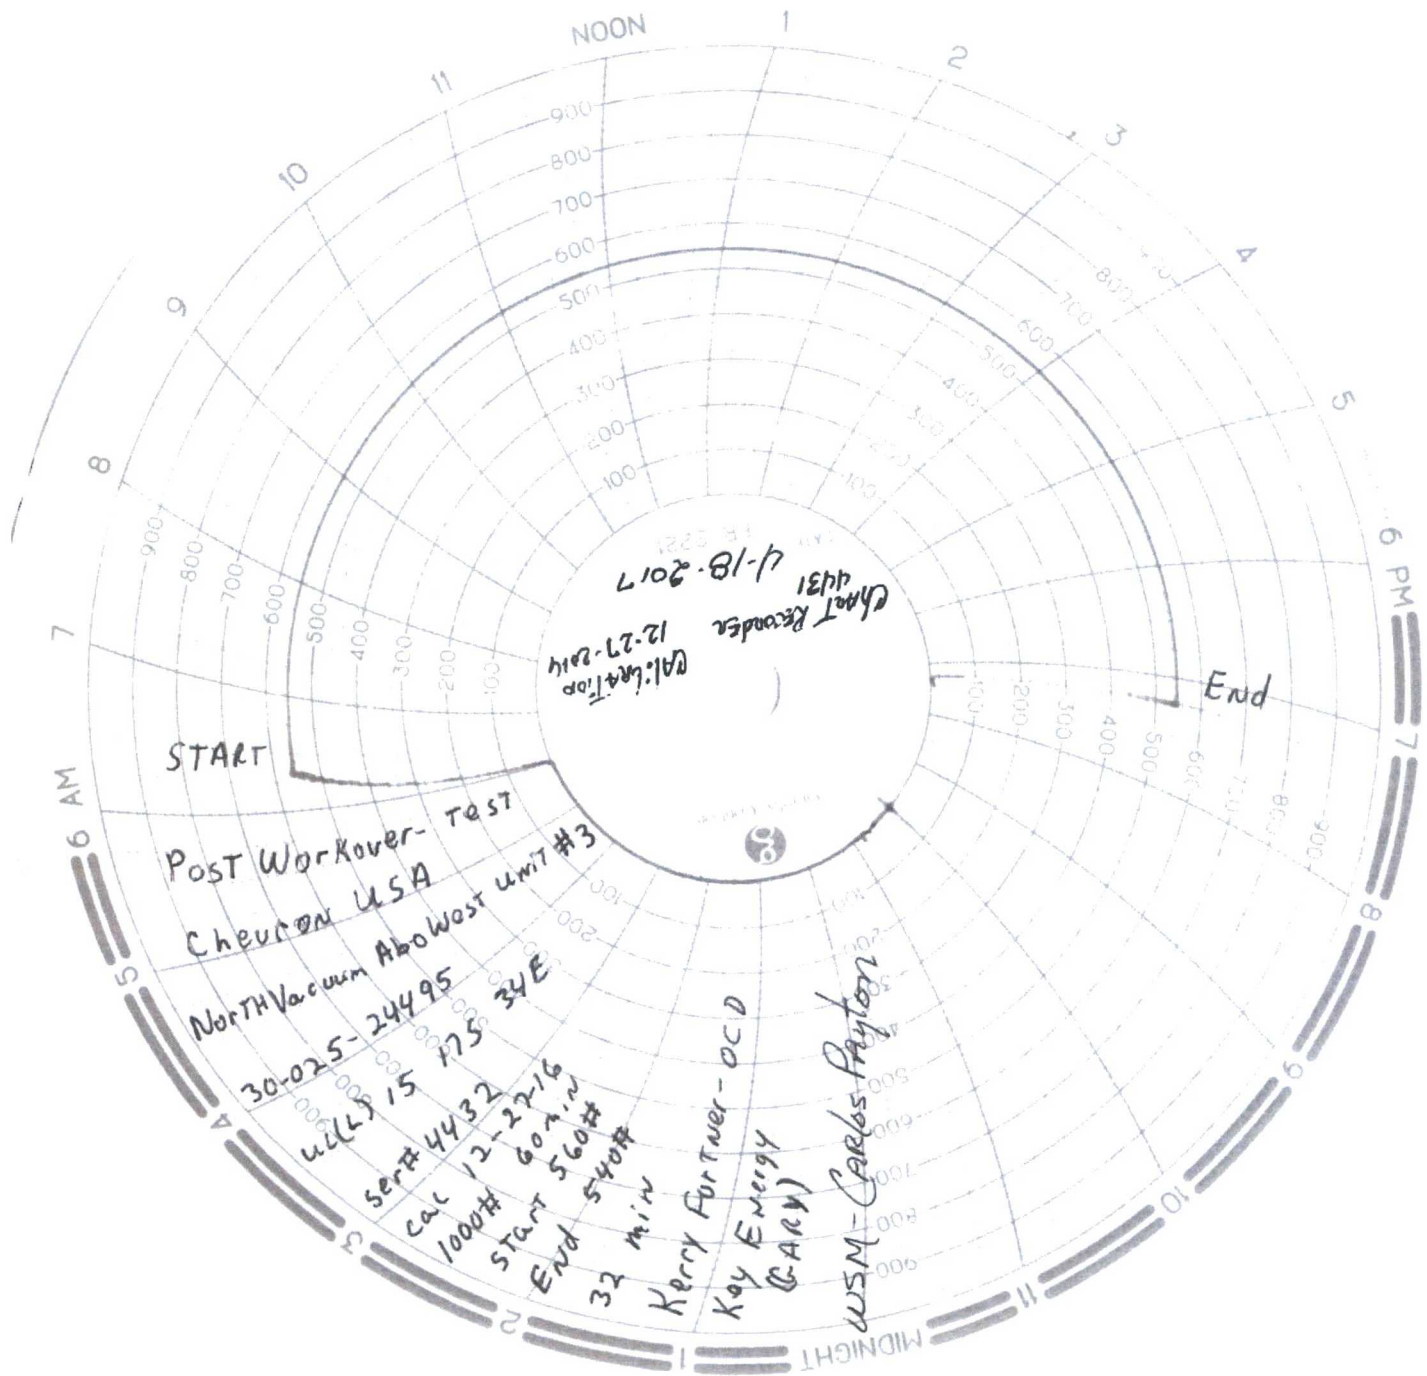 NOON
1
2
3
4
5
6 PM
7
8
9
10
11
MIDNIGHT
1
2
3
4
5
6 AM
7
8
9
10
11
900
800
700
600
500
400
300
200
100
800
700
600
500
400
300
200
100
100
200
300
400
500
600
700
800
900
100
200
300
400
500
600
700
800
900
100
200
900
900
800
700
600
500
400
300
200
100
Chart Recorder
4431
4-18-2017
Calibration
START
End
Post Workover-Test
Chevron USA
North Vacuum Abo West Unit #3
30-025-24495
15 17S 34E
ser# 4432
cal 12-27-16
1000# 60 min
Start 560#
End 540#
32 min
Kerry Fortner-OCD
Key Energy
(GARY)
WSM-Carlos Payton